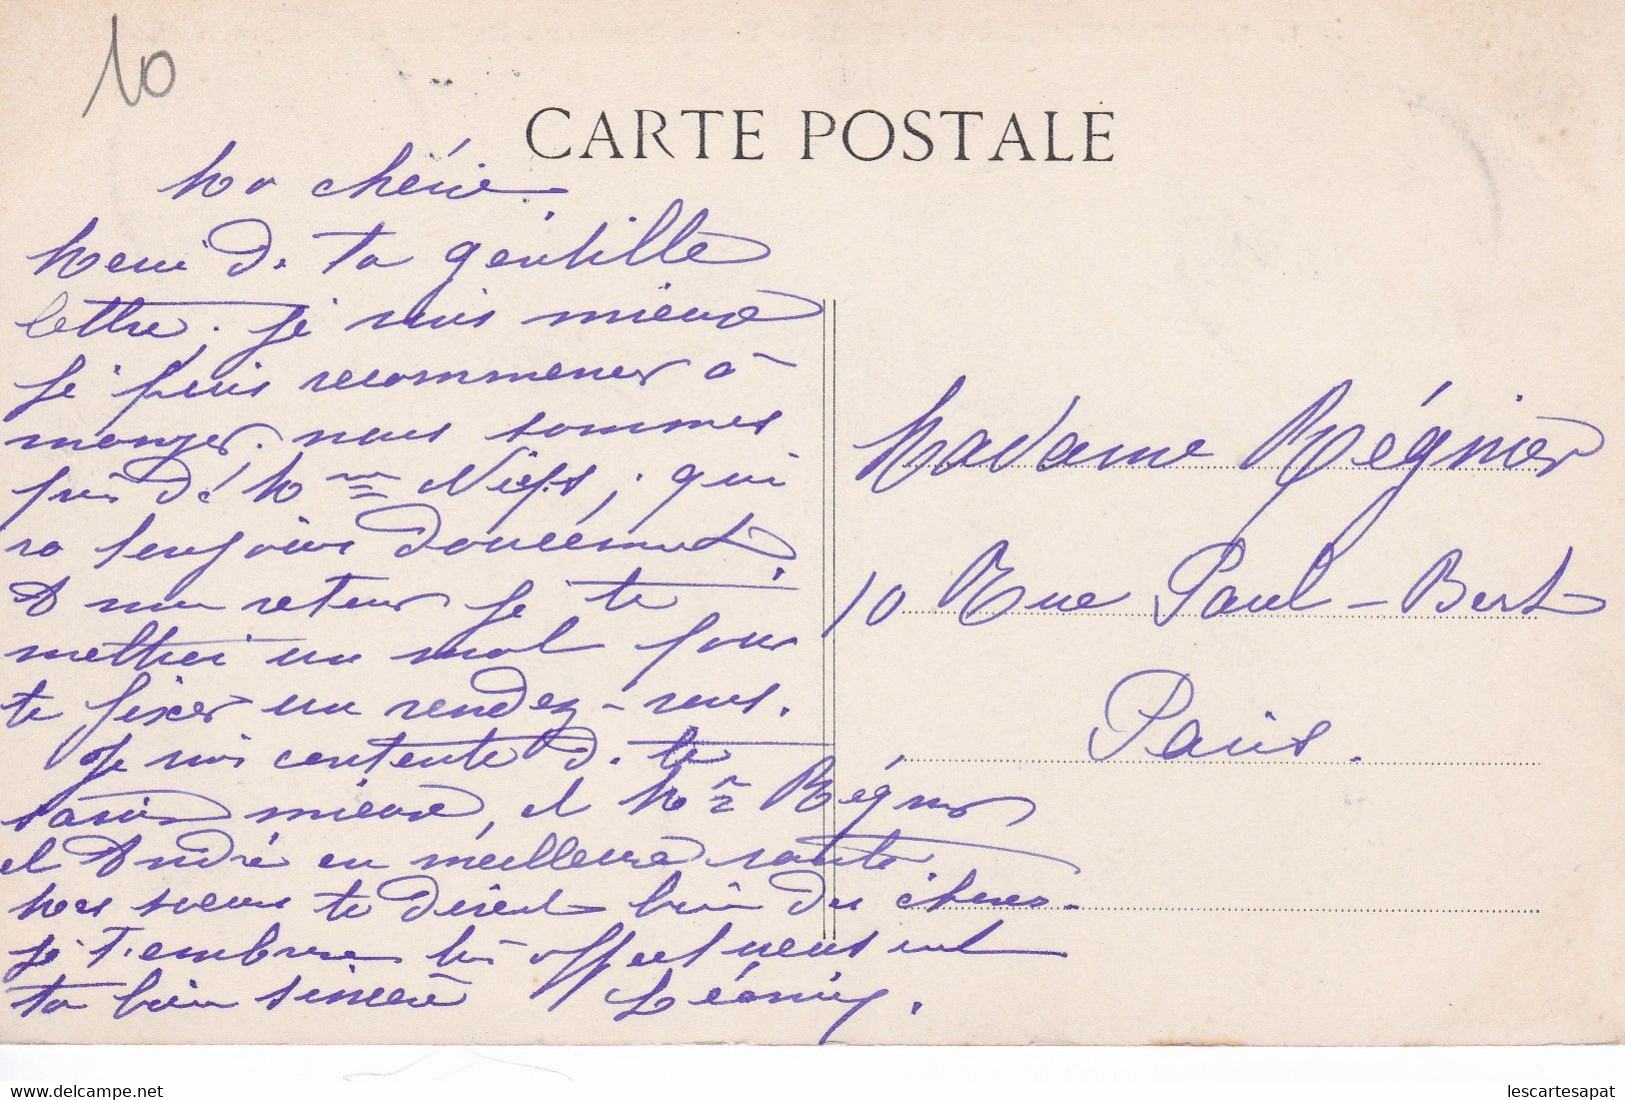 10
CARTE POSTALE
Ma chérie
Merci de ta gentille
lettre. je suis mieux
je puis recommencer à
manger. nous sommes
près de Mme ; qui
va toujours doucement.
A mon retour je te
mettrai un mot pour
te fixer un rendez-vous.
Je suis contente de te
savoir mieux, et Mr Régnier
et André en meilleure santé
Mes sœurs te disent bien des choses.
je t'embrasse bien affectueusement
ta bien sincère Léonie.
Madame Régnier
10 Rue Paul-Bert
Paris.
delcampe.net
lescartesapat